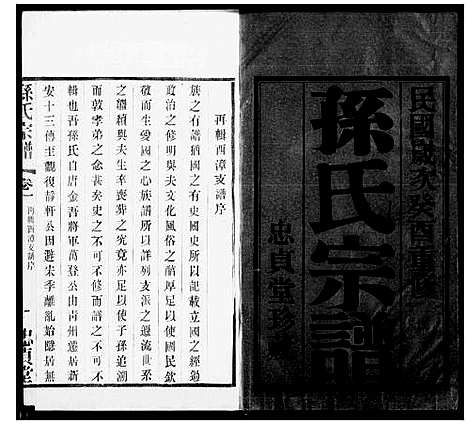 民國
酉重修
孫氏宗譜
忠貞堂珍
再輯西漳支譜序
族之有譜猶國之有史國史所以記載立國之經過
政治之修明與夫文化風俗之醇厚足以使國民欽
敬而生愛國之心族譜所以詳列支派之遷流世系
之疆積與夫生卒喪葬之究竟亦足以使子孫追溯
而敦孝弟之念甚矣史之不可不編猶譜之不可不
輯也吾孫氏自唐金吾將軍萬登公由青州遷居新
安十三傳至觀復靜軒公因避宋季離亂始隱居無
孫氏宗譜
卷一
再輯西漳支譜序
一
忠貞堂